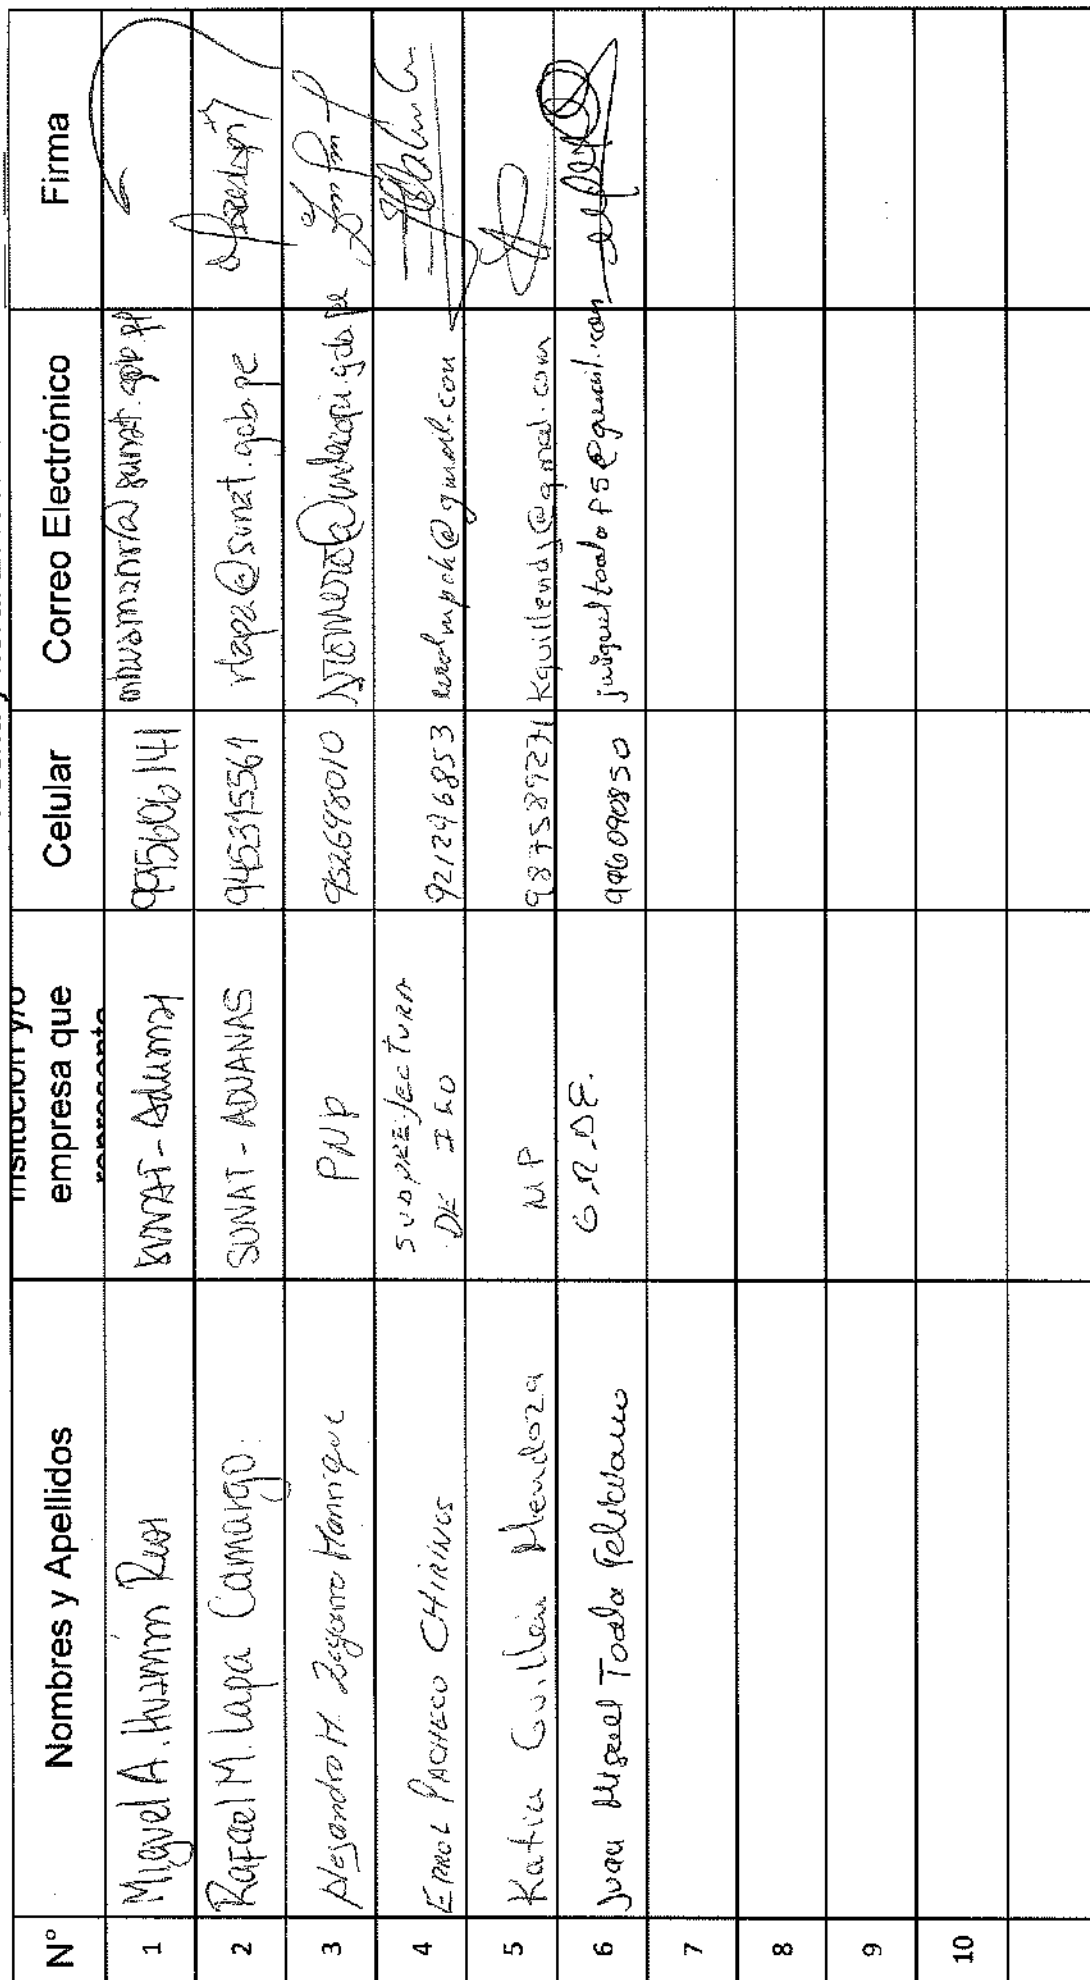 N° Nombres y Apellidos empresa que Celular Correo Electrónico Firma
1 Miguel A. Huamm Rios SUNAT - Aduanas 995606141
2 Rafael M. Lapa Camargo. SUNAT - ADUANAS 945315561 rlapa@sunat.gob.pe
3 Alejandro M. Zegarra Manrique PNP 952698010
4 ERROL PACHECO CHIRINOS SUBPREFECTURA DE ILO 921296853 errolmpch@gmail.com
5 Katia Guillén Mendoza MP 987589271 Kquillendj@gmail.com
6 Juan Miguel Toala Feliciano G.R.DE. 996090850 jmigueltoalof5@gmail.com
7
8
9
10